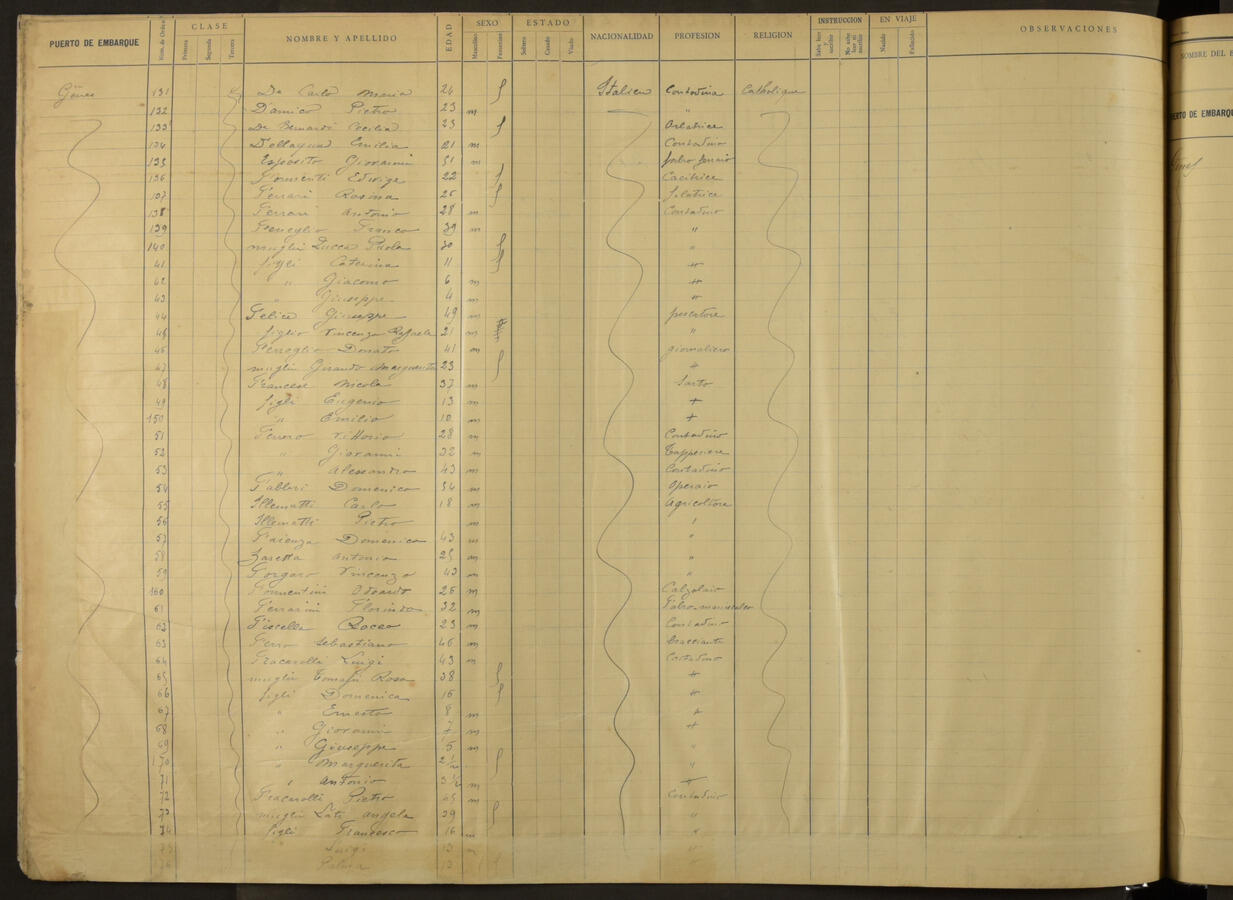 PUERTO DE EMBARQUE Núm. de Orden CLASE Primera Segunda Tercera NOMBRE Y APELLIDO EDAD SEXO Masculino Femenino ESTADO Soltero Casado Viudo NACIONALIDAD PROFESION RELIGION INSTRUCCION Sabe leer y escribir No sabe leer ni escribir EN VIAJE Nacido Fallecido OBSERVACIONES
Gênes 131 De Carlo Maria 24 f Italien Contadina Catholique
132 D'amico Pietro 23 m "
133 De Bernardi Cecilia 23 f
134 Dellaqua Emilia 21 m Contadino
135 Esposito Giovanni 51 m
136 Formenti Edvige 22 f
137 Ferrari Rosina 25 f filatrice
138 Ferrari Antonio 28 m Contadino
139 Franco 39 m "
140 moglie Lucca Paola 30 f "
41 figli Caterina 11 f "
42 " Giacomo 6 m "
43 " Giuseppe 4 m "
44 Felice Giuseppe 49 m pescatore
45 figlio Vincenzo Raffaele 21 m "
46 Ferroglio Donato 41 m giornaliero
47 moglie Margherita 23 f "
48 Francese Nicola 37 m Sarto
49 figli Eugenio 13 m "
150 " Emilio 10 m "
51 Ferrero Vittorio 28 m Contadino
52 " Giovanni 32 m Tappeziere
53 " Alessandro 43 m Contadino
54 Fabbri Domenico 34 m Operaio
55 Carlo 18 m Agricoltore
56 Pietro m
57 Domenico 43 m "
58 Antonio 25 m "
59 Vincenzo 43 m "
160 Formentini Odoardo 26 m Calzolaio
61 Ferrarini Florindo 32 m
62 Fiscella Rocco 23 m Contadino
63 Ferro Sebastiano 46 m bracciante
64 Fracarolli Luigi 43 m Contadino
65 moglie Rosa 38 f "
66 figli Domenica 16 f "
67 " Ernesto 8 m "
68 " Giovanni 7 m "
69 " Giuseppe 5 m "
170 " Margherita 2 1/2 f "
71 " Antonio 3 1/2 m "
72 Fracarolli Pietro 45 m Contadino
73 moglie Angela 39 f "
74 figli Francesco 16 m "
75 " Luigi 13 m "
76 Palma 13 f
NOMBRE DEL B
ERTO DE EMBARQU